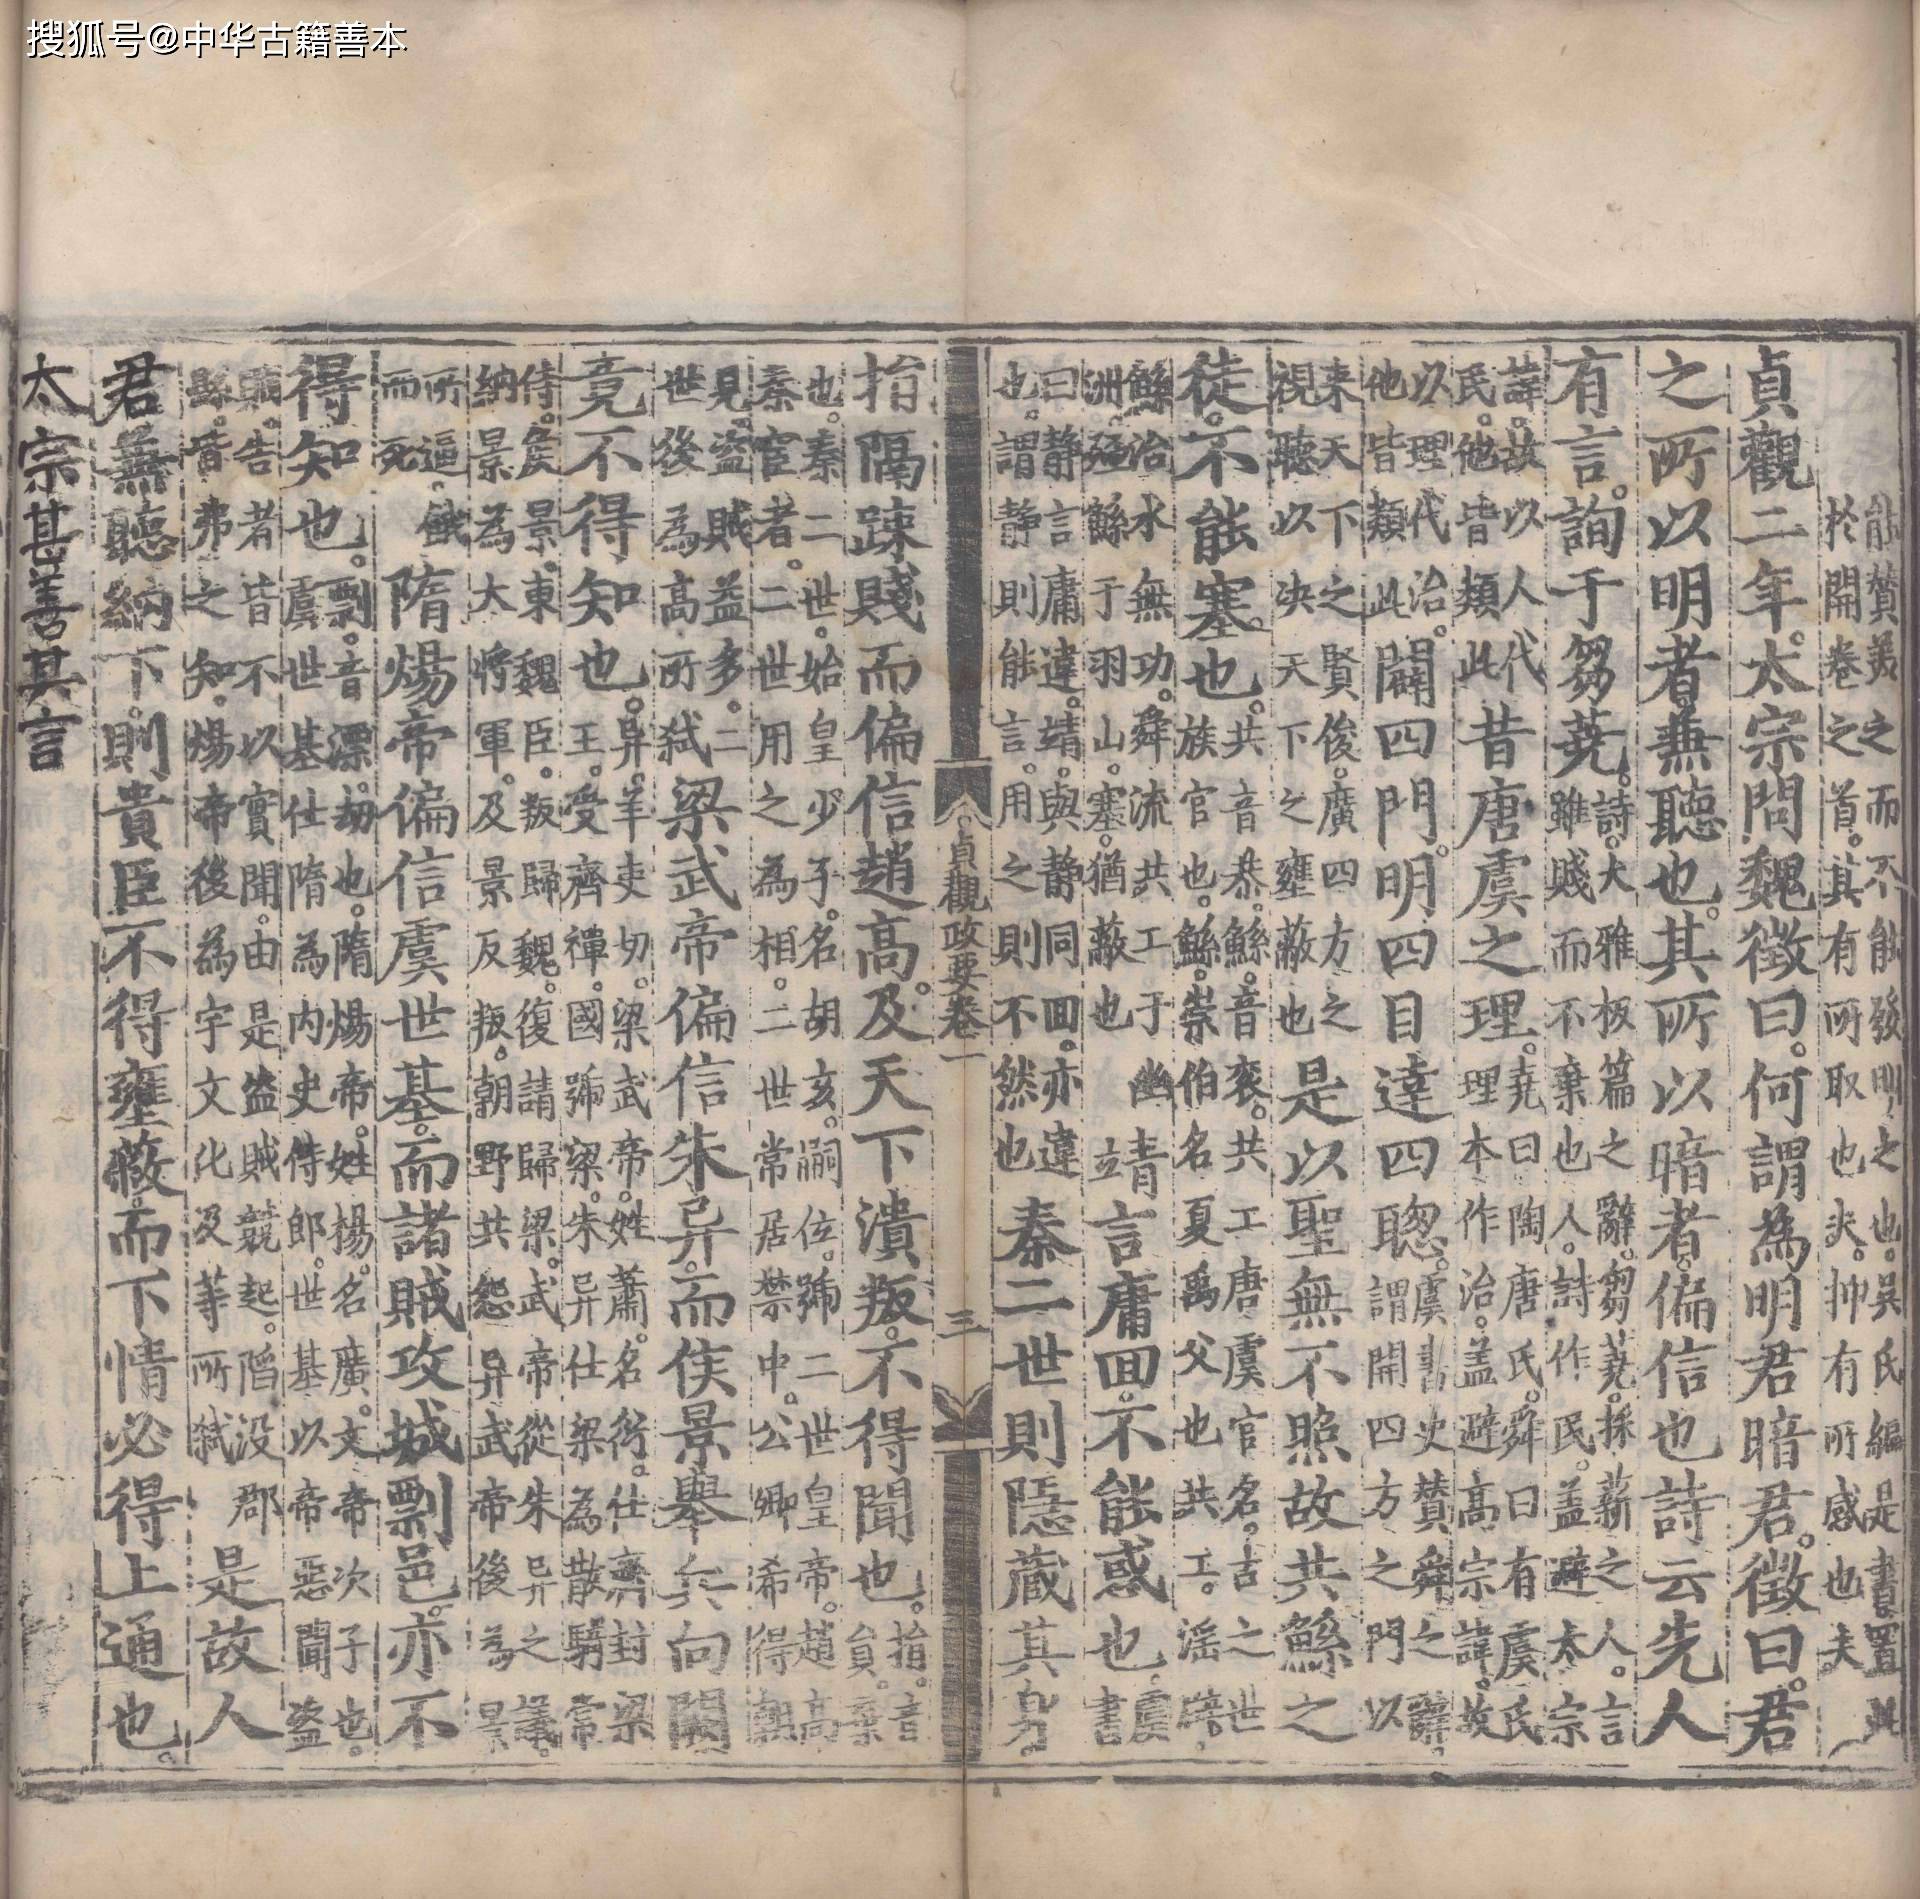 搜狐号@中华古籍善本
能贊美之而不能發明之也。吳氏編是書置此
於開卷之首。其有所取也夫。抑有所感也夫
貞觀二年。太宗問魏徵曰。何謂為明君暗君。徵曰。君
之所以明者兼聽也。其所以暗者。偏信也詩云先人
有言。詢于芻蕘。詩。大雅板篇之辭。芻蕘。採薪之人。言
雖賤而不棄也人。詩作民。蓋避太宗
諱。故以人代
民。他皆類此
昔唐虞之理。堯曰陶唐氏。舜曰有虞氏
理本作治。蓋避高宗諱。故
以理代治。
他皆類此
闢四門。明四目達四聰。虞書史贊舜之辭。
謂開四方之門以
来天下之賢俊。廣四方之
視聽以決天下之壅蔽也
是以聖無不照故共鯀之
徒。不能塞也。共音恭。鯀。音衮。共工唐虞官名。古之世
族官也。鯀。崇伯名夏禹父也共工。滛辟。
鯀治水無功。舜流共工于幽
洲。殛鯀于羽山。塞。猶蔽也
靖言庸回。不能惑也。虞
書
曰静言庸違。靖。與静同回。亦違
也。謂静則能言。用之則不然也
秦二世則隱藏其身。
貞觀政要卷一
三
捐隔疎賤而偏信趙高。及天下潰叛。不得聞也。捐。音
員。棄
也。秦二世。始皇少子。名胡亥。嗣位。號二世皇帝。趙高
秦宦者。二世用之為相。二世常居禁中。公卿希得朝
見。盜賊益多。二
世後為高所弑
梁武帝偏信朱异。而侯景舉兵向闕
竟不得知也。异。羊吏切。梁武帝。姓蕭。名衍。仕齊封梁
王。受齊禪。國號梁。朱异仕梁為散騎常
侍。侯景。東魏臣。叛歸魏。復請歸梁。武帝從朱异之議。
納景為大將軍。及景反叛。朝野共怨异武帝後為景
所逼。餓
而死
隋煬帝偏信虞世基。而諸賊攻城剽邑。亦不
得知也。剽。音漂。劫也。隋煬帝。姓楊。名廣。文帝次子也。
虞世基仕隋為内史侍郎。世基以帝惡聞盜
賊。告者皆不以實聞。由是盜賊競起。陷没郡
縣。皆弗之知。煬帝後為宇文化及等所弑
是故人
君兼聽納下。則貴臣不得壅蔽。而下情必得上通也。
太宗甚善其言